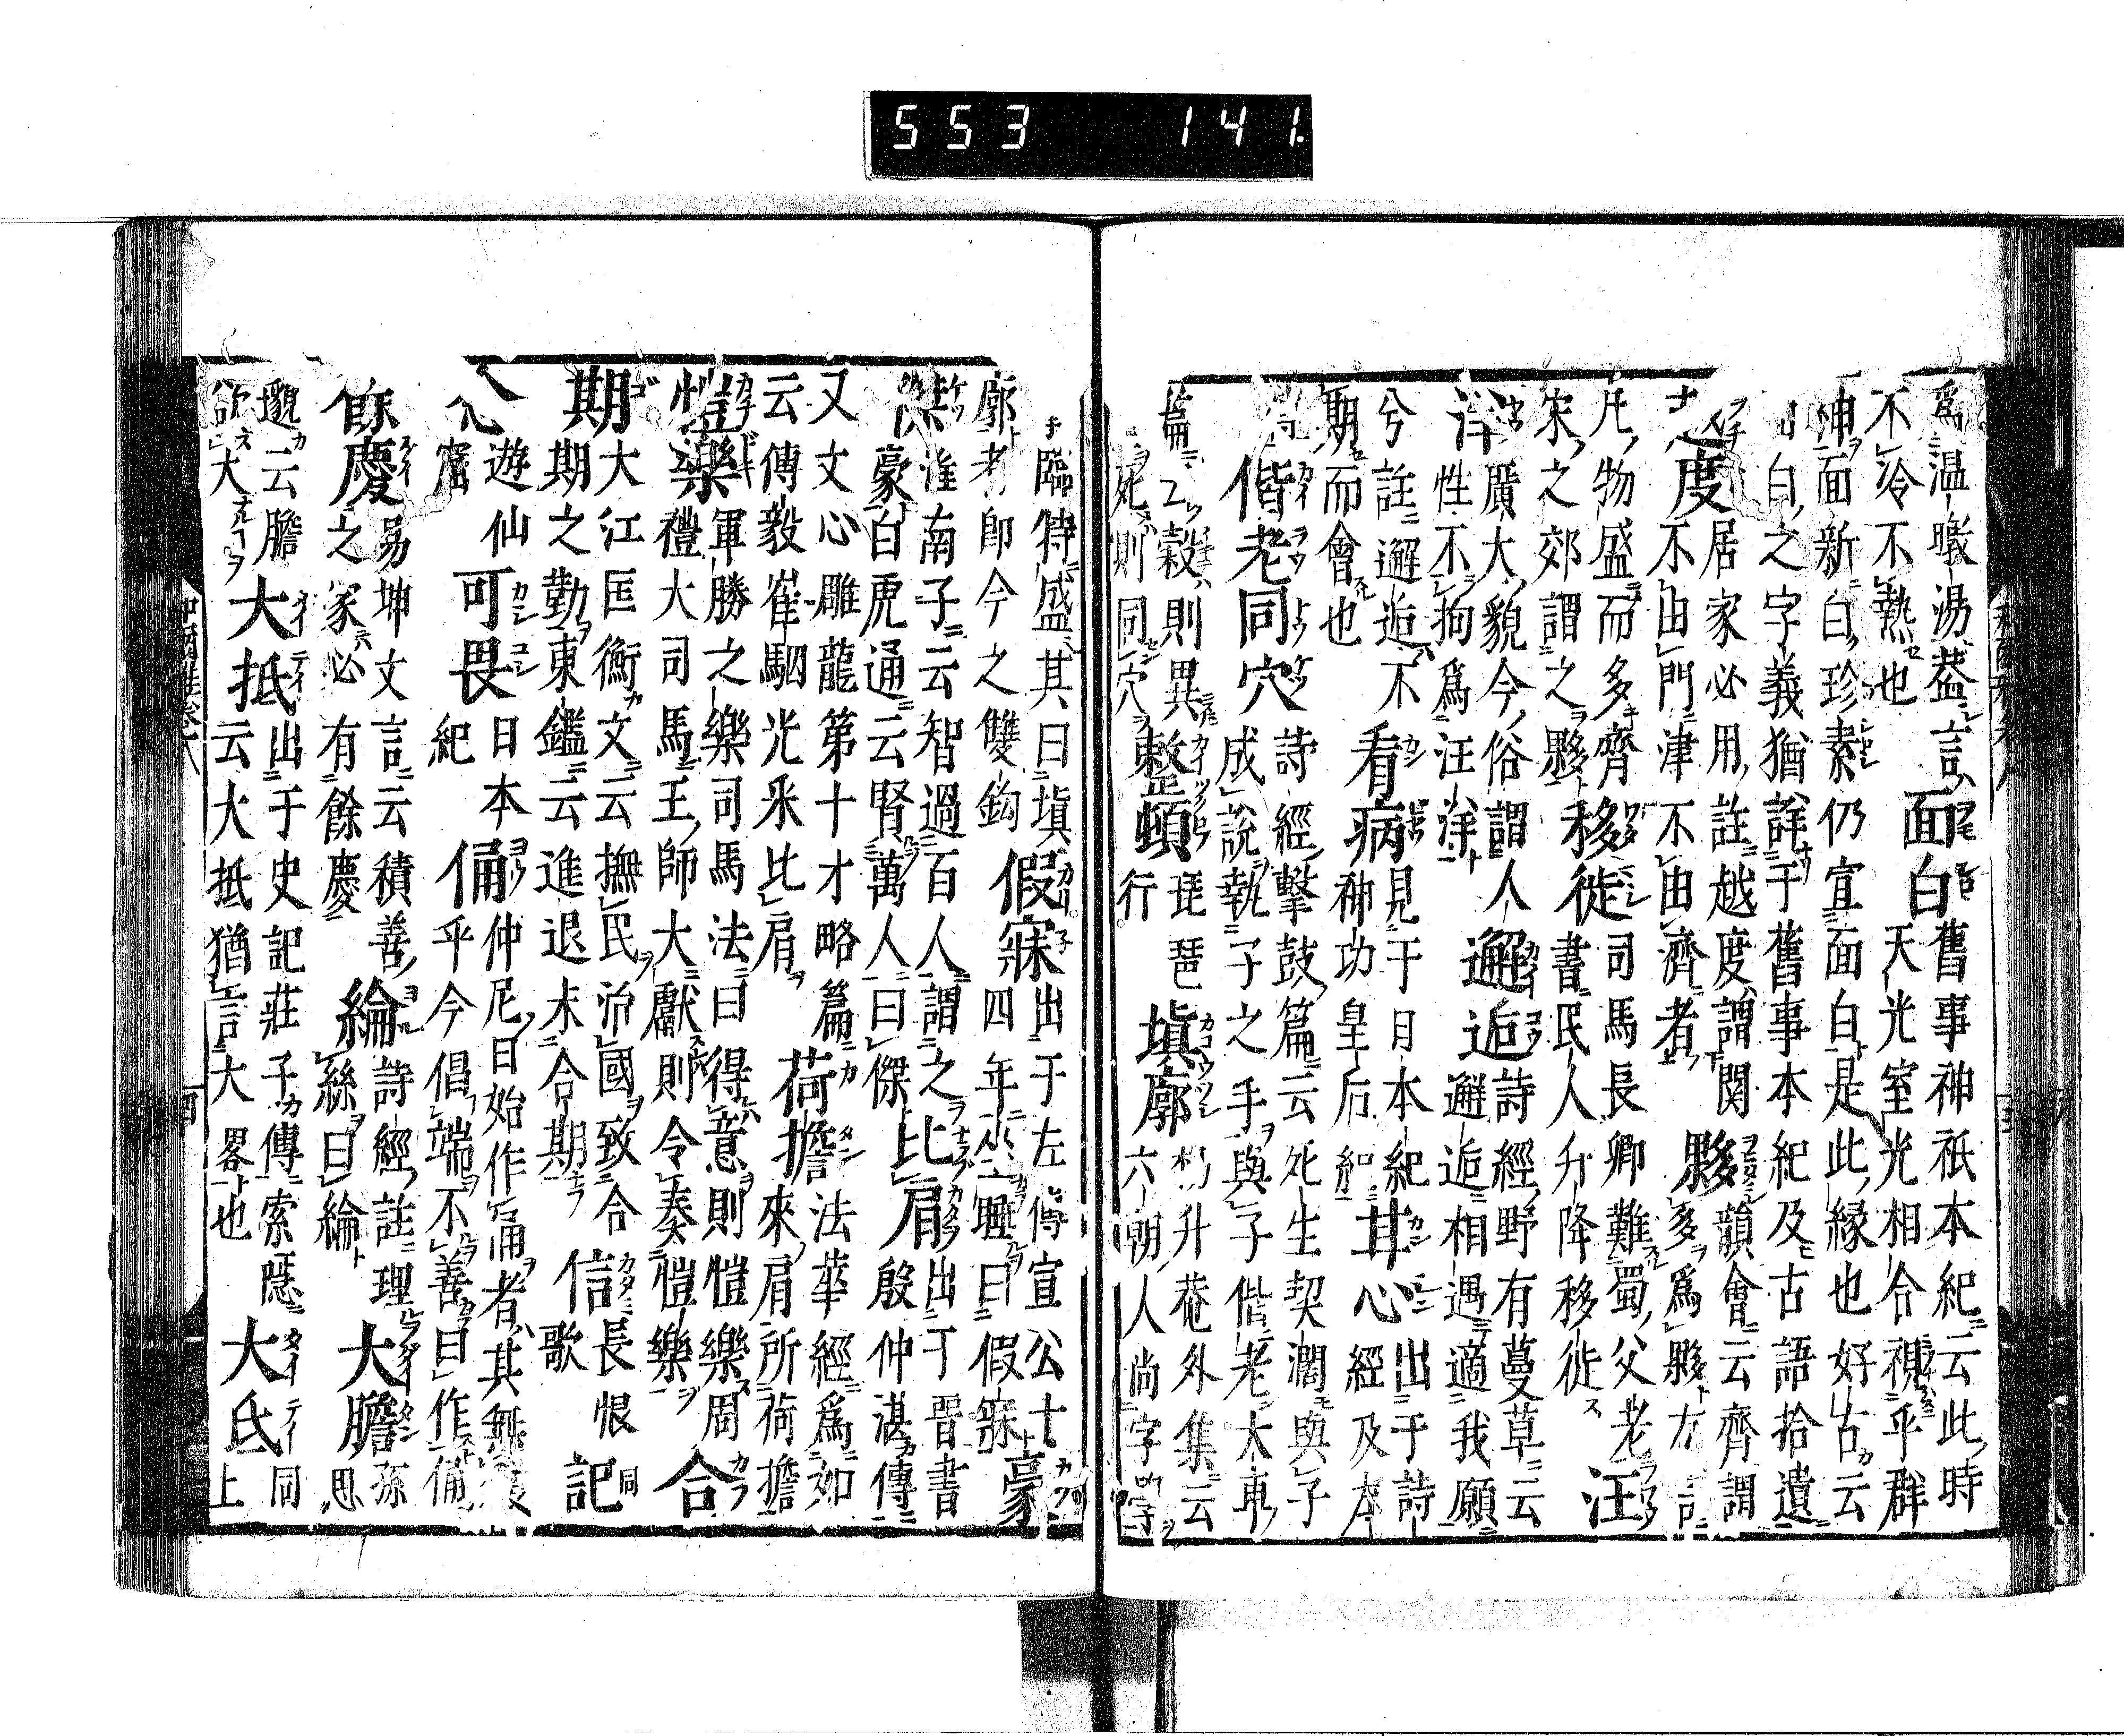 553 141.
爲温暾湯蓋言面白舊事神祇本紀云此時
不冷不熱也天光室光相合視乎群
神面新白珍素仍宜面白是此縁也好古云
白之字義猶詳于舊事本紀及古語拾遺
度居家必用註越度謂関
不由門津不由濟者夥韻會云齊謂
多爲夥
凡物盛而多齊
宋之郊謂之夥移徙司馬長卿難蜀父老
書民人升降移徙汪
洋廣大貌今俗謂人
性不拘爲汪洋邂逅詩經野有蔓草云
邂逅相遇適我願
兮註邂逅不
期而會也看病見于日本紀
神功皇后紀甘心出于詩
經及本
偕老同穴詩經擊鼓篇云死生契濶與子
成說執子之手與子偕老大車
篇云穀則異
死則同穴整頓琵琶
行塡廓升菴外集云
六朝人尚字
臨特盛其曰塡
廓者即今之雙鈎假寐出于左傳宣公十
四年坐興曰假寐豪
傑淮南子云智過百人謂之
豪白虎通云賢萬人曰傑比肩出于晋書
殷仲湛傳
又文心雕龍第十才略篇
云傳毅崔駰光釆比肩荷擔法華經爲如
來肩所荷擔
愷樂軍勝之樂司馬法曰得意則愷樂周
禮大司馬王師大獻則令奏愷樂合
期大江匡衡文云撫民治國致合
期之勤東鑑云進退未合期信長恨
歌記同
遊仙
窟可畏日本
紀俑仲尼曰始作俑者其無後
乎今倡端不善曰作俑
餘慶易坤文言云積善
之家必有餘慶綸詩經註理
絲曰綸大膽孫
思
邈云膽
欲大大抵出于史記莊子傳索隱
云大抵猶言大畧也大氐同
上